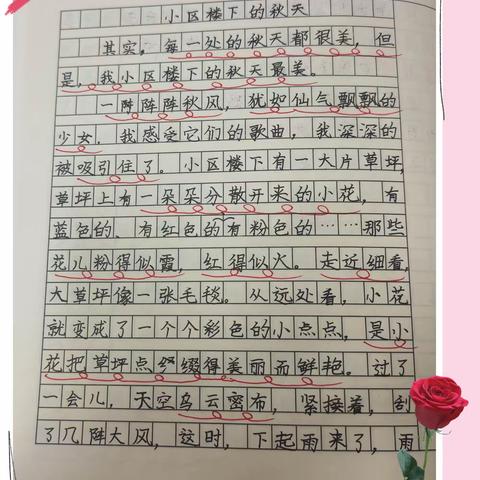 小区楼下的秋天
其实，每一处的秋天都很美，但
是，我小区楼下的秋天最美。
一阵阵阵秋风，犹如仙气飘飘的
少女，我感受它们的歌曲，我深深的
被吸引住了。小区楼下有一大片草坪，
草坪上有一朵朵分散开来的小花，有
蓝色的、有红色的有粉色的……那些
花儿粉得似霞，红得似火。走近细看，
大草坪像一张毛毯。从远处看，小花
就变成了一个个彩色的小点点，是小
花把草坪点缀得美丽而鲜艳。过了
一会儿，天空乌云密布，紧接着，刮
了几阵大风，这时，下起雨来了，雨